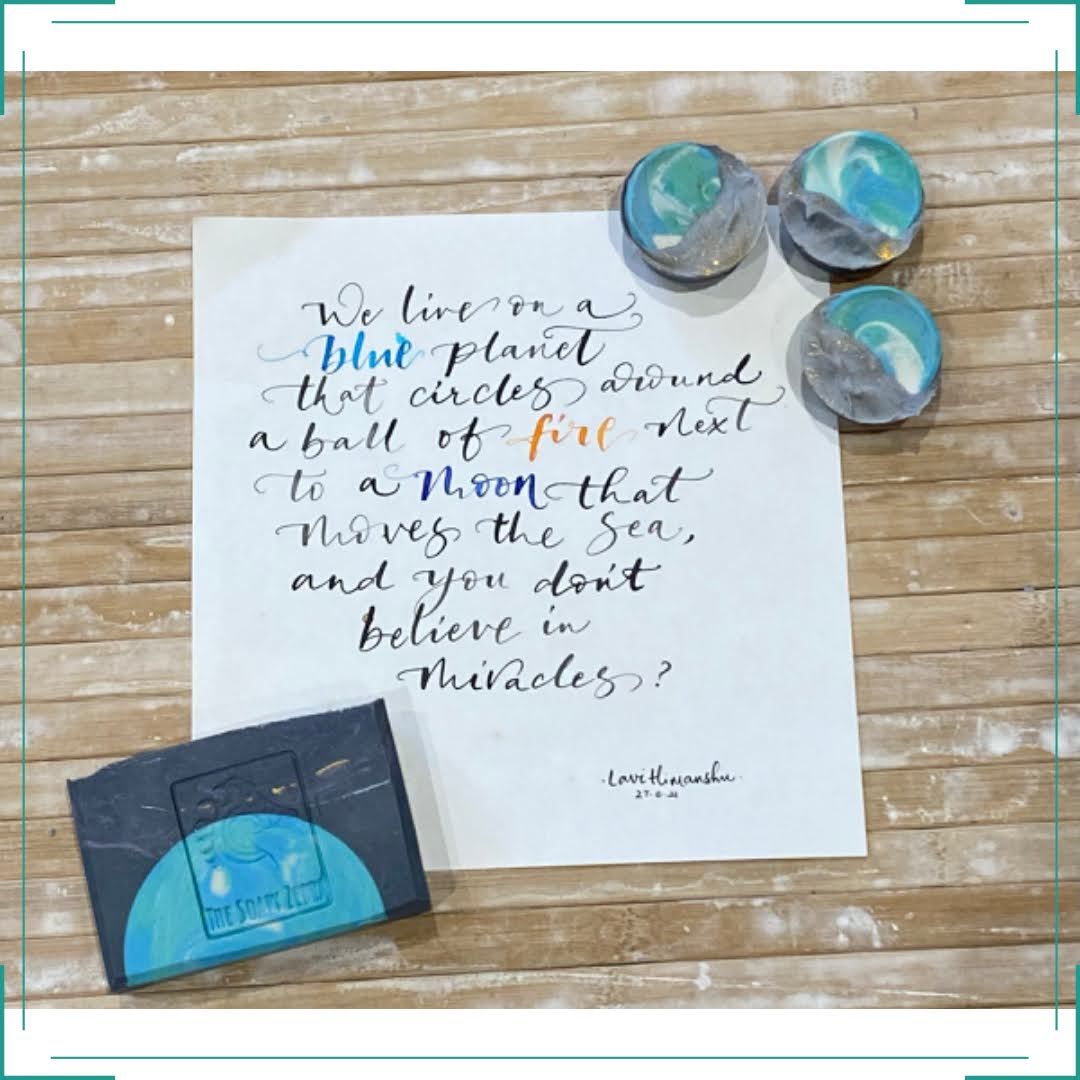 We live on a
blue planet
that circles around
a ball of fire next
to a Moon that
moves the Sea,
and you don't
believe in
miracles?
·Lavi Himanshu·
THE SOAPY ZEBRA